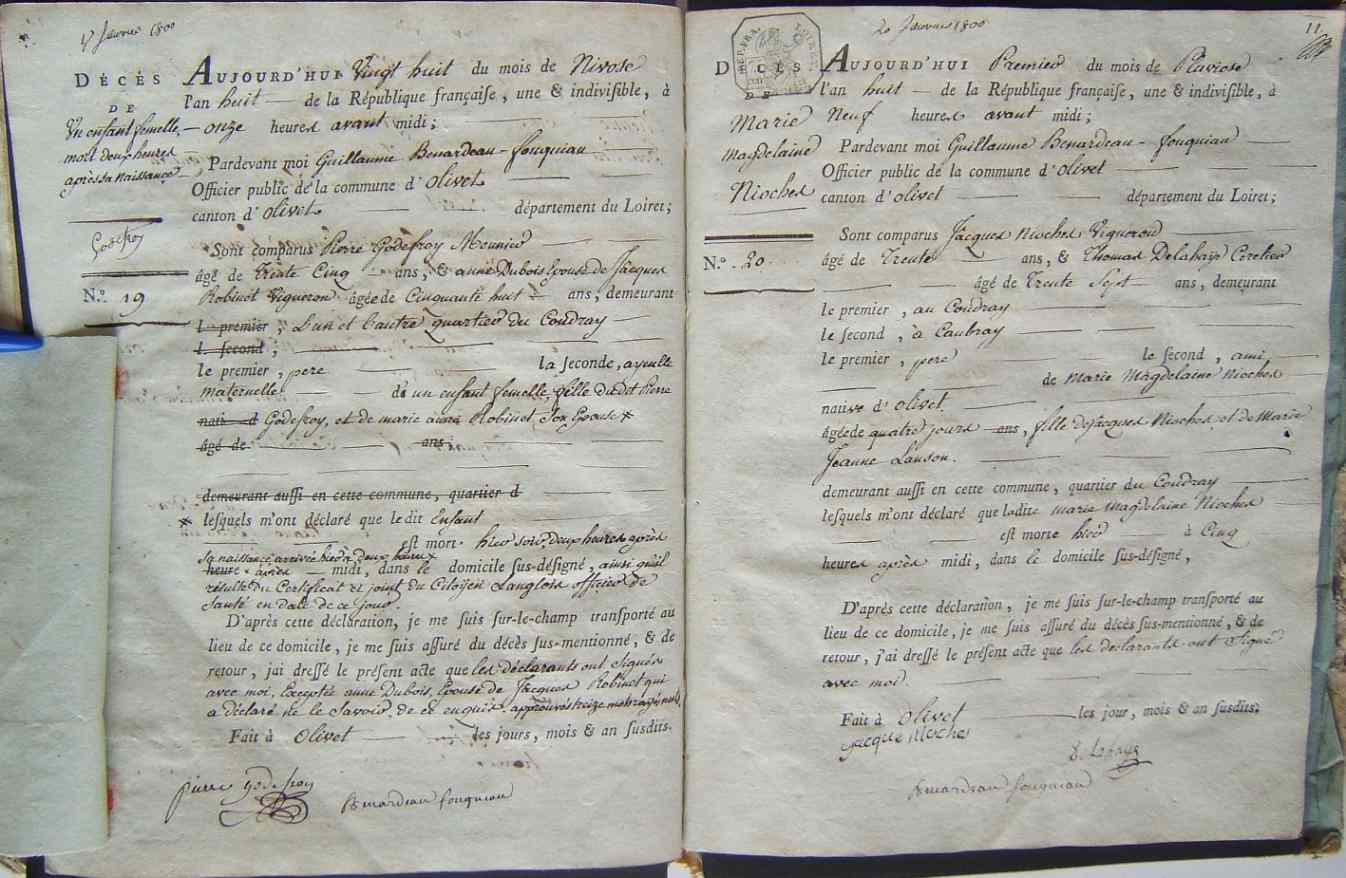 17 Janvier 1800
DÉCÈS
DE
Un enfant femelle,
mort deux heures
après sa naissance
Godefroy
N.º 19
AUJOURD'HUI Vingt huit du mois de Nivose
l'an huit de la République françaiſe, une & indiviſible, à
onze heures avant midi;
Pardevant moi Guillaume Benardeau - fouquiau
Officier public de la commune d'olivet
canton d'olivet département du Loiret;
Sont comparus Pierre Godefroy Meunier
âgé de Trente Cinq ans, & anne Dubois Epouse de Jacques
Robinet Vigneron âgée de Cinquante huit ans, demeurant
l. premier, L'un et l'autre quartier du Coudray
l. ſecond,
le premier, pere la ſeconde, ayeulle
maternelle de un enfant femelle, fille dudit Pierre
natif d Godefroy, et de marie anne Robinet, Son Epouse *
âgé de ans,
demeurant auſſi en cette commune, quartier d
* leſquels m'ont déclaré que le dit Enfant
est mort hier soir, deux heures après
sa naissance arrivée hier à deux heures
heure après midi, dans le domicile ſus-déſigné, ainsi qu'il
résulte du Certificat ci joint du Citoyen Langlois officier de
Santé en date de ce jour.
D'après cette déclaration, je me ſuis ſur-le-champ tranſporté au
lieu de ce domicile, je me ſuis aſſuré du décès ſus-mentionné, & de
retour, j'ai dreſſé le préſent acte que les déclarants ont signés
avec moi, Excepté anne Dubois, Epouse de Jacques Robinet qui
a déclaré ne le Savoir, de ce enquis. approuvés treize mots rayés nuls.
Fait à Olivet les jours, mois & an ſuſdits.
pierre godefroy
Benardeau fouquiau
20 Janvier 1800
11
DÉCÈS
DE
Marie
Magdelaine
Nioches
N.º 20
AUJOURD'HUI Premier du mois de Pluviose
l'an huit de la République françaiſe, une & indiviſible, à
Neuf heures avant midi;
Pardevant moi Guillaume Benardeau - fouquiau
Officier public de la commune d'olivet
canton d'olivet département du Loiret;
Sont comparus Jacques Nioches Vigneron
âgé de Trente ans, & Thomas Delahaye
âgé de Trente Sept ans, demeurant
le premier, au Coudray
le ſecond, à Caubray
le premier, pere le ſecond, ami
de Marie Magdelaine Nioches
native d'olivet
âgée de quatre jours ans, fille de Jacques Nioches et de Marie
Jeanne Lanson.
demeurant auſſi en cette commune, quartier du Coudray
leſquels m'ont déclaré que ladite marie magdelaine Nioches
est morte hier à Cinq
heures après midi, dans le domicile ſus-déſigné,
D'après cette déclaration, je me ſuis ſur-le-champ tranſporté au
lieu de ce domicile, je me ſuis aſſuré du décès ſus-mentionné, & de
retour, j'ai dreſſé le préſent acte que les déclarants ont Signé
avec moi.
Fait à Olivet les jour, mois & an ſuſdits.
jacque Nioches
D. Lahaye
Benardeau fouquiau